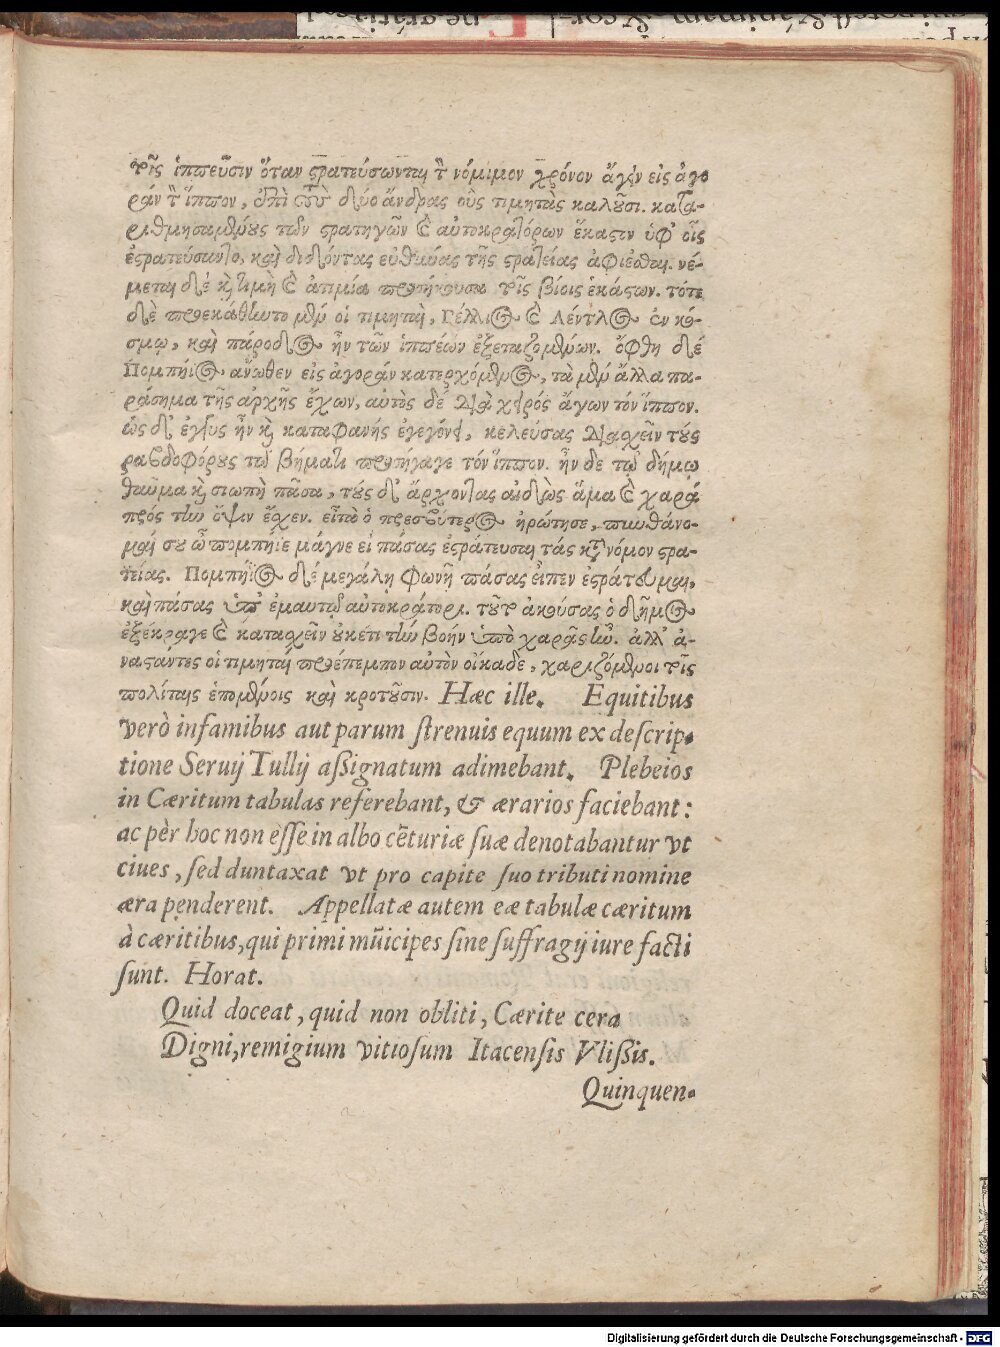 τοῖς ἱππεῦσιν ὅταν στρατεύσωνται τὸν νόμιμον χρόνον ἄγειν εἰς ἀγο
ράν τὸν ἵππον, ἐπὶ τοὺς δύο ἄνδρας οὓς τιμητὰς καλοῦσι. κατα-
ριθμησαμένους τῶν στρατηγῶν καὶ αὐτοκρατόρων ἕκαστον ὑφ' οἷς
ἐστρατεύσαντο, καὶ διδόντας εὐθύνας τῆς στρατείας ἀφιέσθαι. νέ-
μεται δὲ καὶ τιμὴ καὶ ἀτιμία προσήκουσα τοῖς βίοις ἑκάστων. τότε
δὲ προεκάθηντο μὲν οἱ τιμηταὶ, Γέλλιος καὶ Λέντλος ἐν κό-
σμῳ, καὶ πάροδος ἦν τῶν ἱππέων ἐξεταζομένων. ὤφθη δὲ
Πομπήιος ἄνωθεν εἰς ἀγορὰν κατερχόμενος, τὰ μὲν ἄλλα πα-
ράσημα τῆς ἀρχῆς ἔχων, αὐτὸς δὲ διὰ χειρός ἄγων τόν ἵππον.
ὡς δ' ἐγγὺς ἦν καὶ καταφανής ἐγεγόνει, κελεύσας διασχεῖν τούς
ραβδοφόρους τῷ βήματι προσήγαγε τόν ἵππον. ἦν δε τῷ δήμῳ
θαῦμα καὶ σιωπὴ πᾶσα, τούς δ' ἄρχοντας αἰδὼς ἅμα καὶ χαρά
πρός τὴν ὄψιν ἔσχεν. εἶτα ὁ πρεσβύτερος ἠρώτησε, πυνθάνο-
μαί σου ὦ πομπήϊε μάγνε εἰ πάσας ἐστράτευσαι τάς κατὰ νόμον στρα-
τείας. Πομπήϊος δὲ μεγάλη φωνῇ πάσας εἶπεν ἐστράτευμαι,
καὶ πάσας ὑπ' ἐμαυτῷ αὐτοκράτορι. τοῦτ' ἀκούσας ὁ δῆμος
ἐξέκραγε καὶ κατασχεῖν οὐκέτι τὴν βοήν ὑπὸ χαρᾶς ἦν. ἀλλ' ἀ-
ναστάντες οἱ τιμηταὶ προέπεμπον αὐτὸν οἴκαδε, χαριζόμενοι τοῖς
πολίταις ἑπομένοις καὶ κροτοῦσιν. Hæc ille. Equitibus
verò infamibus aut parum strenuis equum ex descrip-
tione Seruij Tullij assignatum adimebant. Plebeios
in Cæritum tabulas referebant, & ærarios faciebant:
ac pèr hoc non esse in albo cēturiæ suæ denotabantur vt
ciues, sed duntaxat vt pro capite suo tributi nomine
æra penderent. Appellatæ autem eæ tabulæ cæritum
à cæritibus, qui primi mūicipes sine suffragij iure facti
sunt. Horat.
Quid doceat, quid non obliti, Cærite cera
Digni, remigium vitiosum Itacensis Vlissis.
Quinquen-
Digitalisierung gefördert durch die Deutsche Forschungsgemeinschaft - DFG